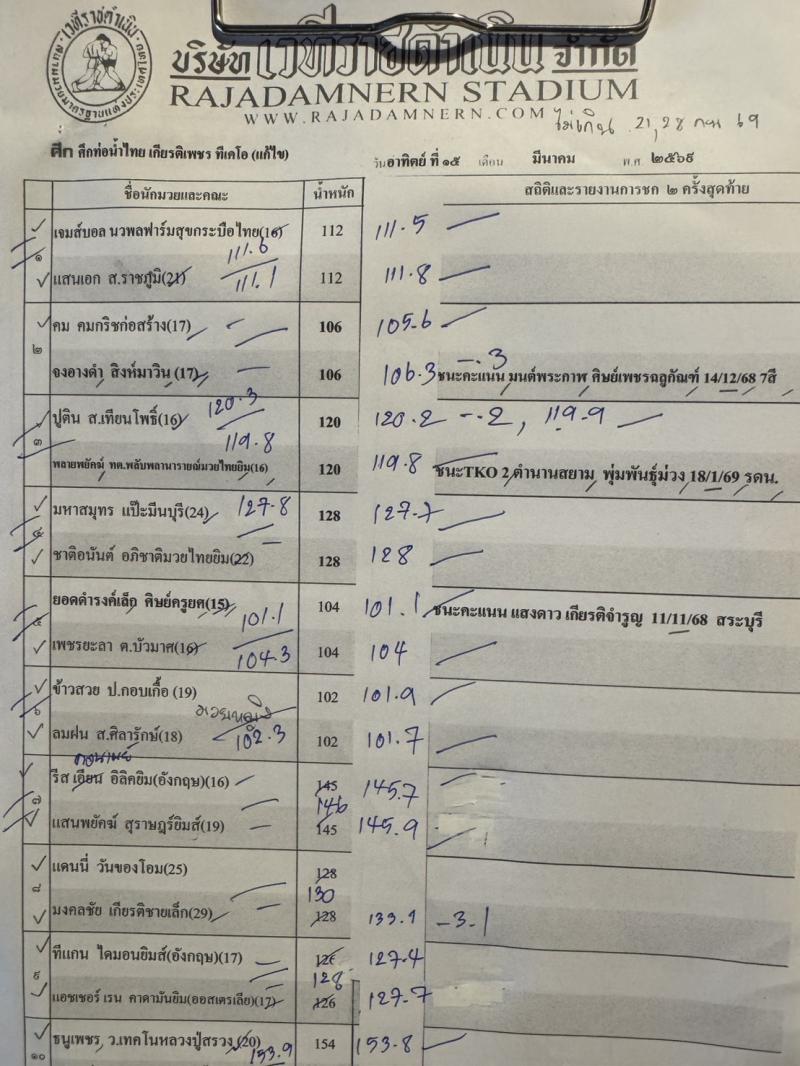 เวทีราชดำเนิน
บริษัท เวทีราชดำเนิน จำกัด
RAJADAMNERN STADIUM
WWW.RAJADAMNERN.COM
ไม่เกิน 21,28 69
ศึก ศึกท่อน้ำไทย เกียรติเพชร ทีเคโอ (แก้ไข)
วันอาทิตย์ ที่ ๑๕ เดือน มีนาคม พ.ศ. ๒๕๖๙
ชื่อนักมวยและคณะ น้ำหนัก สถิติและรายงานการชก ๒ ครั้งสุดท้าย
๑
เจมส์บอล นวพลฟาร์มสุขกระบือไทย(16) 112 111.5
111.6
แสนเอก ส.ราชภูมิ(21) 111.1 112 111.8
๒
คม คมกริชก่อสร้าง(17) 106 105.6
จงอางดำ สิงห์มาวิน (17) 106 106.3 -.3 ชนะคะแนน มนต์พระกาฬ ศิษย์เพชรฉลูกัณฑ์ 14/12/68 7สี
๓
ปูติน ส.เทียนโพธิ์(16) 120.3 120 120.2 -.2, 119.9
119.8
พลายพยัคฆ์ ทต.พลับพลานารายณ์มวยไทยยิม(16) 120 119.8 ชนะTKO 2 ตำนานสยาม พุ่มพันธุ์ม่วง 18/1/69 รดน.
๔
มหาสมุทร แป๊ะมีนบุรี(24) 127.8 128 127.7
ชาติอนันต์ อภิชาติมวยไทยยิม(22) 128 128
๕
ยอดดำรงค์เล็ก ศิษย์ครูยศ(15) 101.1 104 101.1 ชนะคะแนน แสงดาว เกียรติจำรูญ 11/11/68 สระบุรี
เพชรยะลา ต.บัวมาศ(16) 104.3 104 104
๖
ข้าวสวย ป.กอบเกื้อ (19) 102 101.9
มวยหญิง
ลมฝน ส.ศิลารักษ์(18) 102.3 102 101.7
๗
รีส เอียน อิลิคยิม(อังกฤษ)(16) 145 145.7
146
แสนพยัคฆ์ สุราษฎร์ยิมส์(19) 145 145.9
๘
แดนนี่ วันของโอม(25) 128
130
มงคลชัย เกียรติชายเล็ก(29) 128 133.1 -3.1
๙
ทีแกน ไดมอนยิมส์(อังกฤษ)(17) 126 127.4
128
แอชเชอร์ เรน คาดามันยิม(ออสเตรเลีย)(17) 126 127.7
๑๐
ธนูเพชร ว.เทคโนหลวงปู่สรวง (20) 154 153.8
153.9